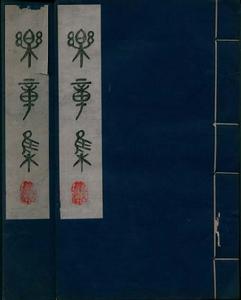 樂章集
樂章集